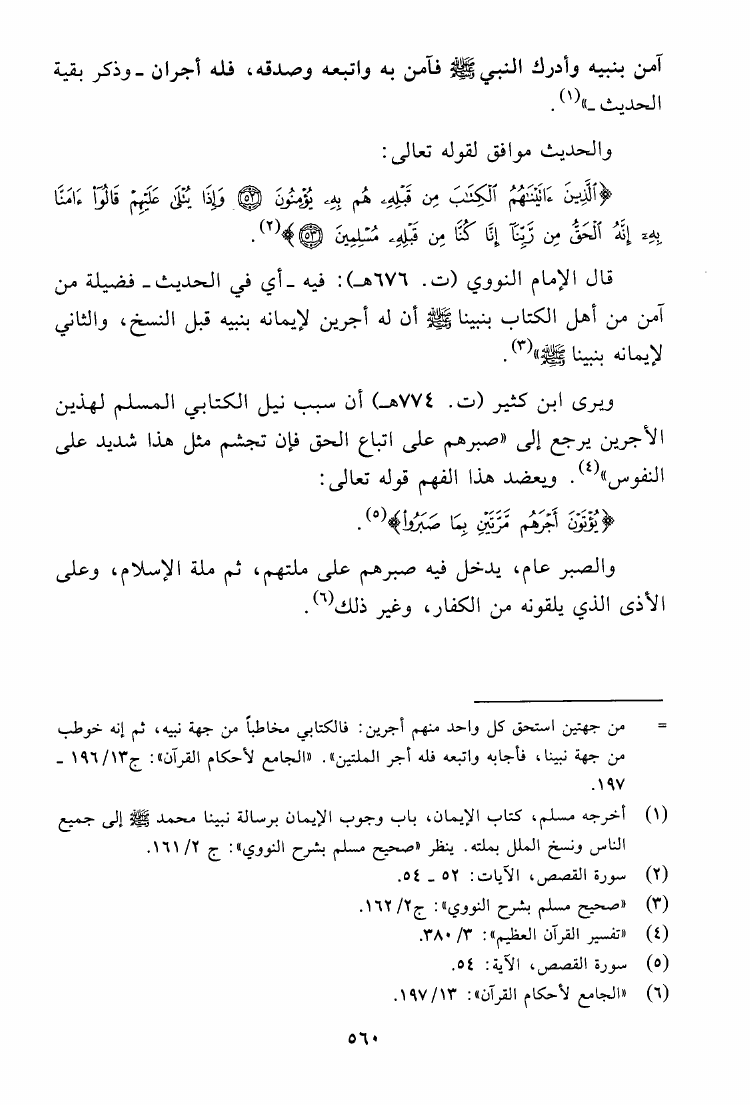 آمن بنبيه وأدرك النبي ﷺ فآمن به واتبعه وصدقه، فله أجران ـ وذكر بقية
الحديث ـ»(١).
والحديث موافق لقوله تعالى:
﴿ٱلَّذِينَ ءَاتَيْنَٰهُمُ ٱلْكِتَٰبَ مِن قَبْلِهِۦ هُم بِهِۦ يُؤْمِنُونَ ۝٥٢ وَإِذَا يُتْلَىٰ عَلَيْهِمْ قَالُوٓا۟ ءَامَنَّا
بِهِۦٓ إِنَّهُ ٱلْحَقُّ مِن رَّبِّنَآ إِنَّا كُنَّا مِن قَبْلِهِۦ مُسْلِمِينَ ۝٥٣﴾(٢).
قال الإمام النووي (ت. ٦٧٦هـ): فيه ـ أي في الحديث ـ فضيلة من
آمن من أهل الكتاب بنبينا ﷺ أن له أجرين لإيمانه بنبيه قبل النسخ، والثاني
لإيمانه بنبينا ﷺ»(٣).
ويرى ابن كثير (ت. ٧٧٤هـ) أن سبب نيل الكتابي المسلم لهذين
الأجرين يرجع إلى «صبرهم على اتباع الحق فإن تجشم مثل هذا شديد على
النفوس»(٤). ويعضد هذا الفهم قوله تعالى:
﴿يُؤْتَوْنَ أَجْرَهُم مَّرَّتَيْنِ بِمَا صَبَرُوا۟﴾(٥).
والصبر عام، يدخل فيه صبرهم على ملتهم، ثم ملة الإسلام، وعلى
الأذى الذي يلقونه من الكفار، وغير ذلك(٦).
= من جهتين استحق كل واحد منهم أجرين: فالكتابي مخاطباً من جهة نبيه، ثم إنه خوطب
من جهة نبينا، فأجابه واتبعه فله أجر الملتين». «الجامع لأحكام القرآن»: ج١٣/ ١٩٦ ـ
١٩٧.
(١) أخرجه مسلم، كتاب الإيمان، باب وجوب الإيمان برسالة نبينا محمد ﷺ إلى جميع
الناس ونسخ الملل بملته. ينظر «صحيح مسلم بشرح النووي»: ج ٢/ ١٦١.
(٢) سورة القصص، الآيات: ٥٢ ـ ٥٤.
(٣) «صحيح مسلم بشرح النووي»: ج٢/ ١٦٢.
(٤) «تفسير القرآن العظيم»: ٣/ ٣٨٠.
(٥) سورة القصص، الآية: ٥٤.
(٦) «الجامع لأحكام القرآن»: ١٣/ ١٩٧.
٥٦٠